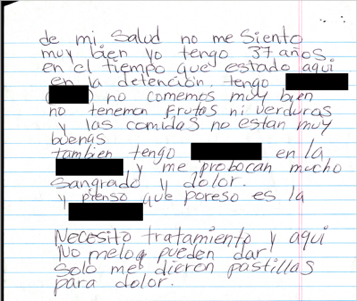 de mi salud no me siento
muy bien yo tengo 37 años
en el tiempo que estado aqui
en la detención tengo
( ) no comemos muy bien
no tenemon frutas ni verduras
y las comidas no estan muy
buenas
tambien tengo en la
y me probocan mucho
sangrado y dolor.
y pienso que poreso es la
Necesito tratamiento y aqui
No melo pueden dar
solo me dieron pastillas
para dolor.